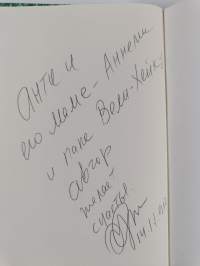 Антс и
его маме - Аннели
и папе Вели-Хейк
автор
желает
счастья.
14.11.